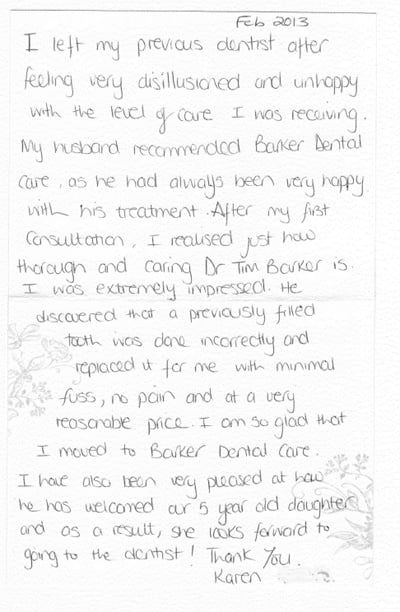 Feb 2013
I left my previous dentist after
feeling very disillusioned and unhappy
with the level of care I was receiving.
My husband recommended Barker Dental
Care, as he had always been very happy
with his treatment. After my first
Consultation, I realised just how
thorough and caring Dr Tim Barker is.
I was extremely impressed. He
discovered that a previously filled
tooth was done incorrectly and
replaced it for me with minimal
fuss, no pain and at a very
reasonable price. I am so glad that
I moved to Barker Dental Care.
I have also been very pleased at how
he has welcomed our 5 year old daughter
and as a result, she looks forward to
going to the dentist! Thank You.
Karen